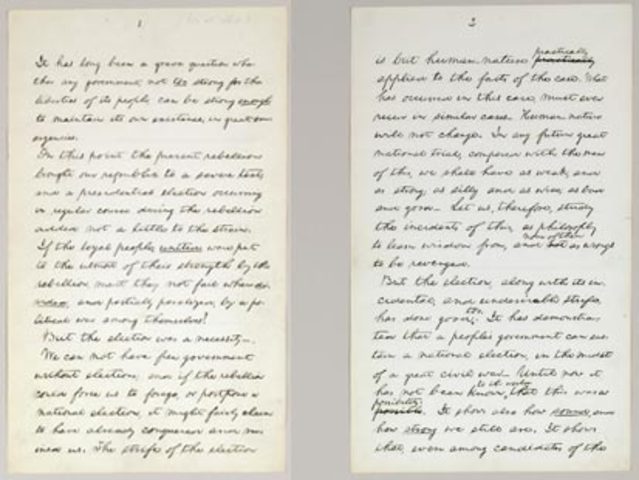 1
It has long been a grave question whe
ther any government, not too strong for the
liberties of its people, can be strong enough
to maintain its own existence, in great em
ergencies.
On this point the present rebellion
brought our republic to a severe test;
and a presidential election occurring
in regular course during the rebellion
added not a little to the strain.
If the loyal people, united, were put
to the utmost of their strength by the
rebellion, must they not fail when di-
vided, and partially paralyzed, by a po-
litical war among themselves?
But the election was a necessity.
We can not have free government
without elections; and if the rebellion
could force us to forego, or postpone a
national election, it might fairly claim
to have already conquered and ru-
ined us. The strife of the election
2
is but human-nature practically
applied to the facts of the case. What
has occurred in this case, must ever
recur in similar cases. Human-nature
will not change. In any future great
national trial, compared with the men
of this, we shall have as weak, and
as strong; as silly and as wise; as bad
and good. Let us, therefore, study
the incidents of this, as philosophy
to learn wisdom from, and none of them as wrongs
to be revenged.
But the election, along with its in-
cidental, and undesirable strife,
has done good too. It has demonstra-
ted that a people's government can sus-
tain a national election, in the midst
of a great civil war. Until now it
has not been known to the world that this was a
possibility. It shows also how sound, and
how strong we still are. It shows
that, even among candidates of the